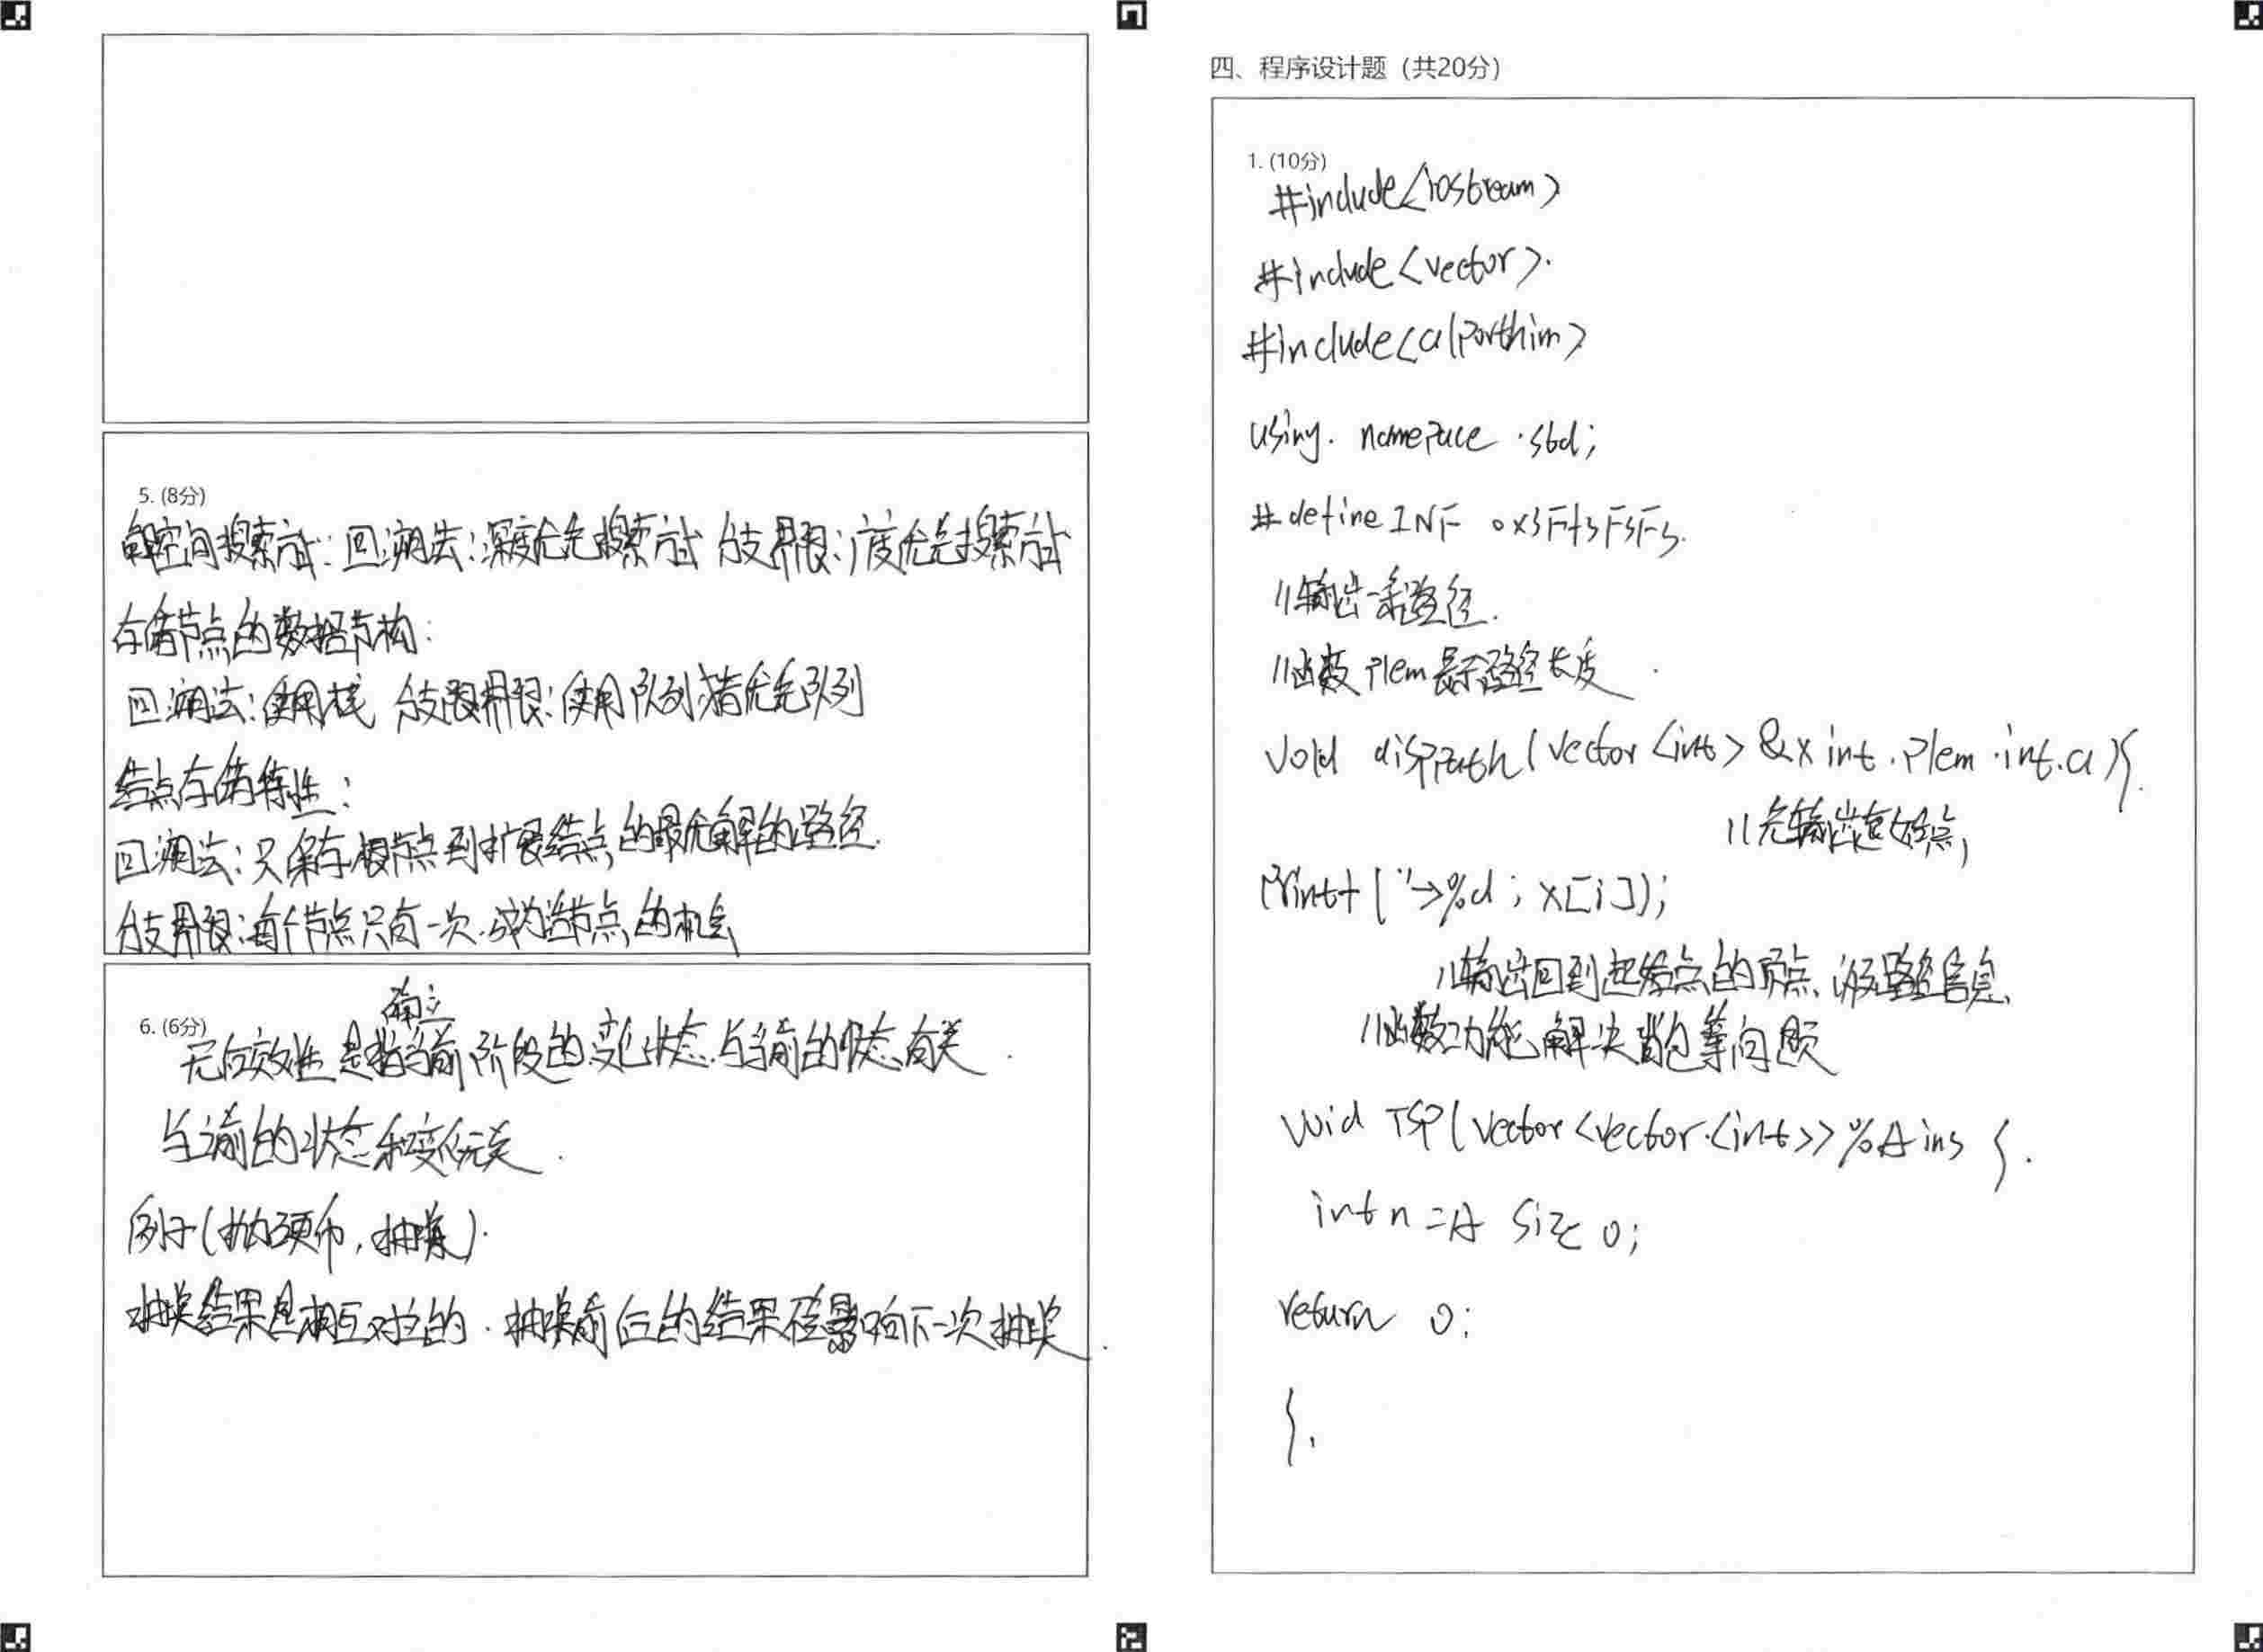 5. (8分)
解空间搜索方式: 回溯法:深度优先搜索方式 分支界限:广度优先搜索方式
存储节点的数据结构:
回溯法:使用栈 分支限界限:使用队列 优先队列
结点存储特性:
回溯法:只保存根节点到扩展结点的最优解的路径.
分支界限:每个节点只有一次 成为活节点的机会
6. (6分)
确立
无后效性 是指当前 阶段的变化状态 与当前的状态有关
与之前的状态和变化无关
例子(抛硬币,抽奖).
抽奖结果是相互对立的. 抽奖前后的结果 影响下一次抽奖.
四、程序设计题(共20分)
1. (10分)
#include<iostream>
#include<vector>.
#include<alporthim>
using. namepace .std;
#define INF 0x3F3F3F3.
//输出一条路径.
//函数 plem 表示路径长度.
void disppath(vector<int>&x int.plem.int.a){
//先输出起始点,
printf("→%d; x[i]);
//输出回到起始点的顶点 以及路径信息
//函数功能 解决背包等问题
void TSP(vector<vector.<int>>%A ins {.
int n=A size 0;
return 0;
}.